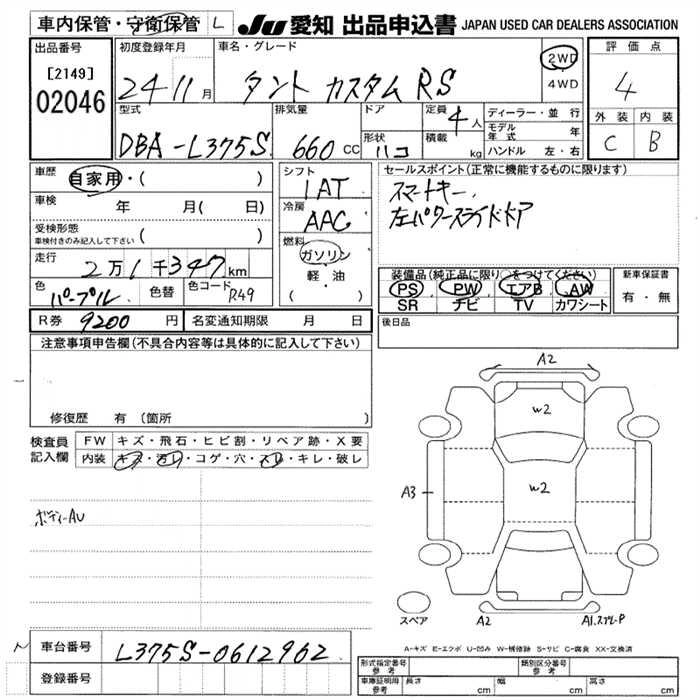 車内保管・守衛保管 L JU 愛知 出品申込書 JAPAN USED CAR DEALERS ASSOCIATION
出品番号 初度登録年月 車名・グレード 評価点
[2149] 24年 11月 タント カスタム RS 2WD 4
02046 4WD
型式 排気量 ドア 定員 4人 ディーラー・並行 外装 内装
モデル年式 年
DBA-L375S 660 CC 形状 ハコ 積載 kg ハンドル 左・右 C B
車歴 自家用・( ) シフト セールスポイント(正常に機能するものに限ります)
IAT スマートキー
車検 年 月( 日) 冷房 左パワースライドドア
AAC
受検形態
車検付きのみ記入して下さい ( ) 燃料
走行 ガソリン
2万1千347km 軽・油 装備品(純正品に限り○をつけてください) 新車保証書
色 色替 色コード ( ) PS PW エアB AW 有・無
パープル R49 SR ナビ TV カワシート
R券 9200 円 名変通知期限 月 日 後日品
注意事項申告欄(不具合内容等は具体的に記入して下さい)
A2
W2
修復歴 有(箇所 )
検査員 FW キズ・飛石・ヒビ割・リペア跡・X要
記入欄 内装 キズ・汚レ・コゲ・穴・スレ・キレ・破レ
A3 W2
ボディーAU
スペア A2 A1.スプレーP
A-キズ E-エクボ U-凹み W-補修跡 S-サビ C-腐食 XX-交換済
車台番号 L375S-0612962
形式指定番号 参考 類別区分番号 参考
登録番号 車庫証明用 参考 長さ cm 幅 cm 高さ cm